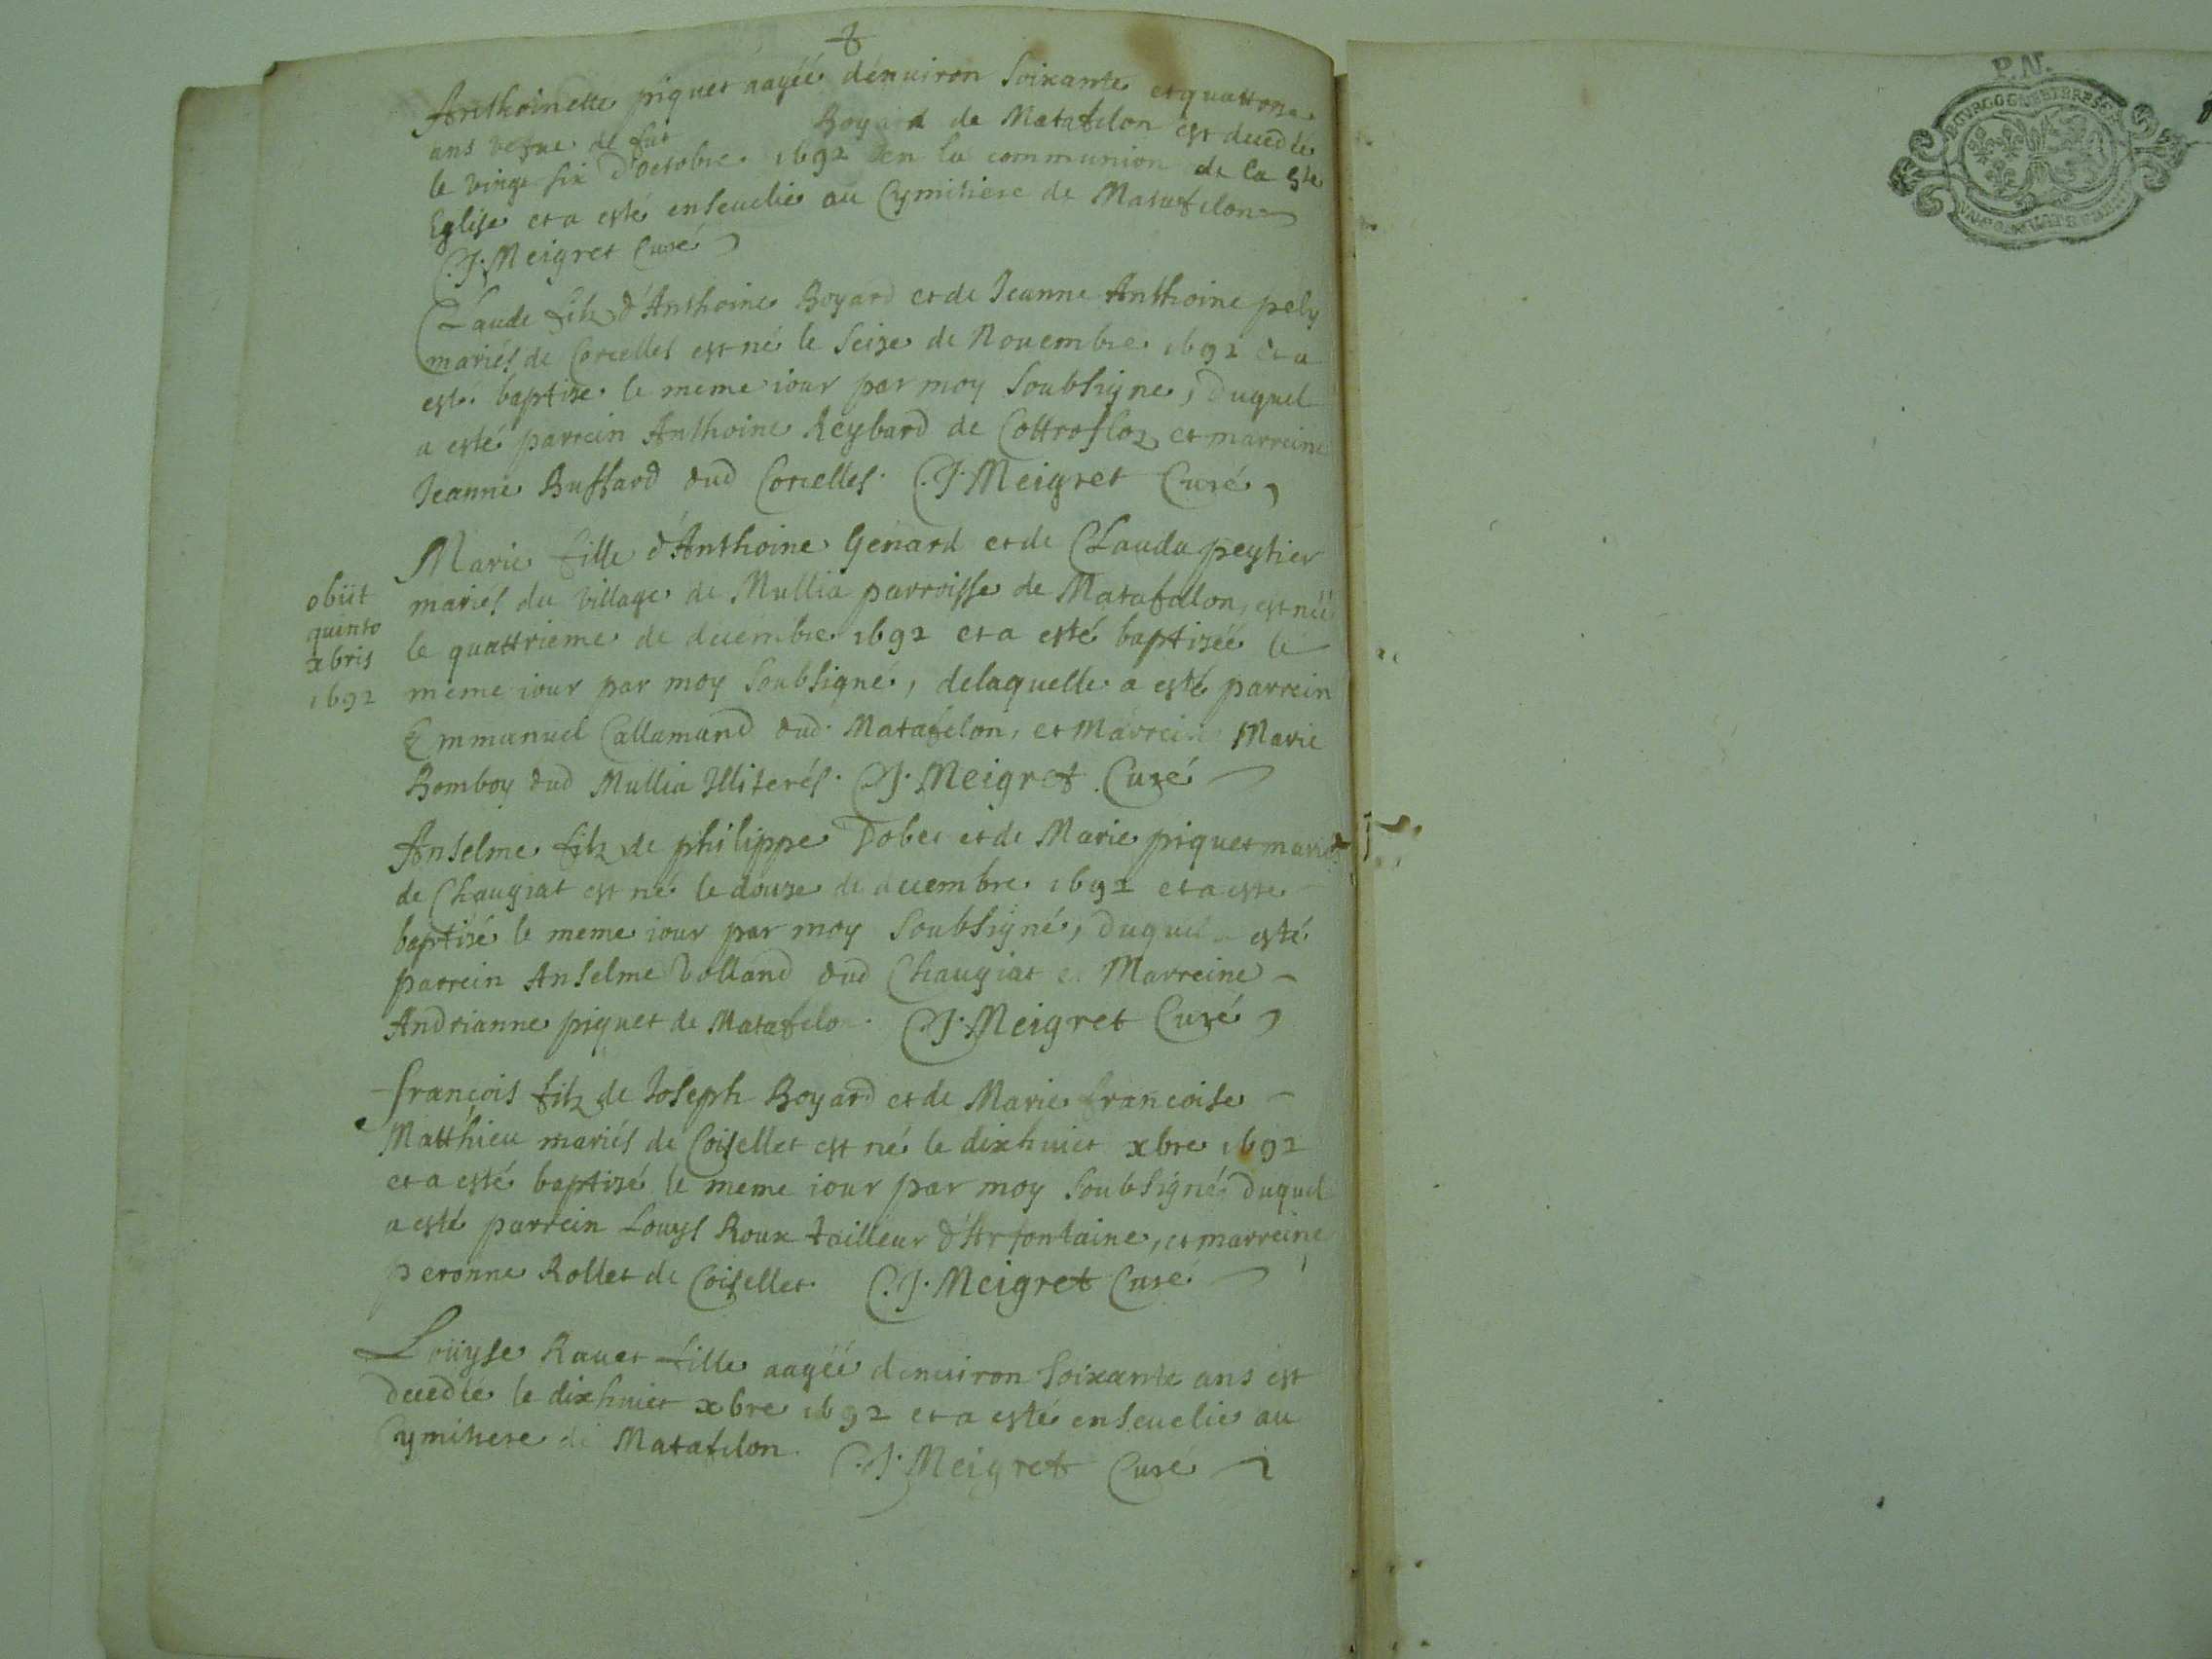 Anthoinette piquet aagéé dénuiron soixante et quattorze
ans vefue de fut Boyard de Matafelon est decedéé
le vingt six d'octobre 1692 en la communion de la Ste
Eglise et a esté enseuelie au Cymitiere de Matafelon
C.J. Meigret Curé
Claude filz d'Anthoine Boyard et de Jeanne Anthoine pely
mariés de Corcelles est né le seize de Nouembre 1692 et a
esté baptize le meme iour par moy soubsigne, duquel
a esté parrein Anthoine Reybard de et marreine
Jeanne Buffard dud Corcelles. C.J. Meigret Curé
Marie fille d'Anthoine Génard et de Clauda peytier
mariés du village de Mullia parroisse de Matafalon, est néé
le quattrieme de decembre 1692 et a esté baptizéé le
meme iour par moy soubsigné, delaquelle a esté parrein
Emmanuel Callamand dud. Matafelon, et Marrein Marie
Bomboy dud Mullia Illiterés. C.J. Meigret Curé
obiit
quinto
xbris
1692
Anselme filz de philippe Dobec et de Marie piquet mariés
de Chaugiat est né le douze de decembre 1692 et a este
baptizé le meme iour par moy soubsigné, duquel a esté
parrein Anselme Volland dud Chaugiat et Marreine
Andrianne piquet de Matafelon. C.J. Meigret Curé
françois filz de Joseph Boyard et de Marie françoise
Matthieu mariés de Coisellet est né le dixhuict xbre 1692
et a esté baptizé le meme iour par moy soubsigné, duquel
a esté parrein Louys Roux tailleur d'Arfontaine, et marreine
peronne Rollet de Coisellet. C.J. Meigret Curé
Loüyse Rauet fille aagéé denuiron soixante ans est
decedéé le dixhuict xbre 1692 et a esté enseuelie au
Cymitiere de Matafelon. C.J. Meigret Curé
P.N.
BOVRGOGNE ET BRESSE